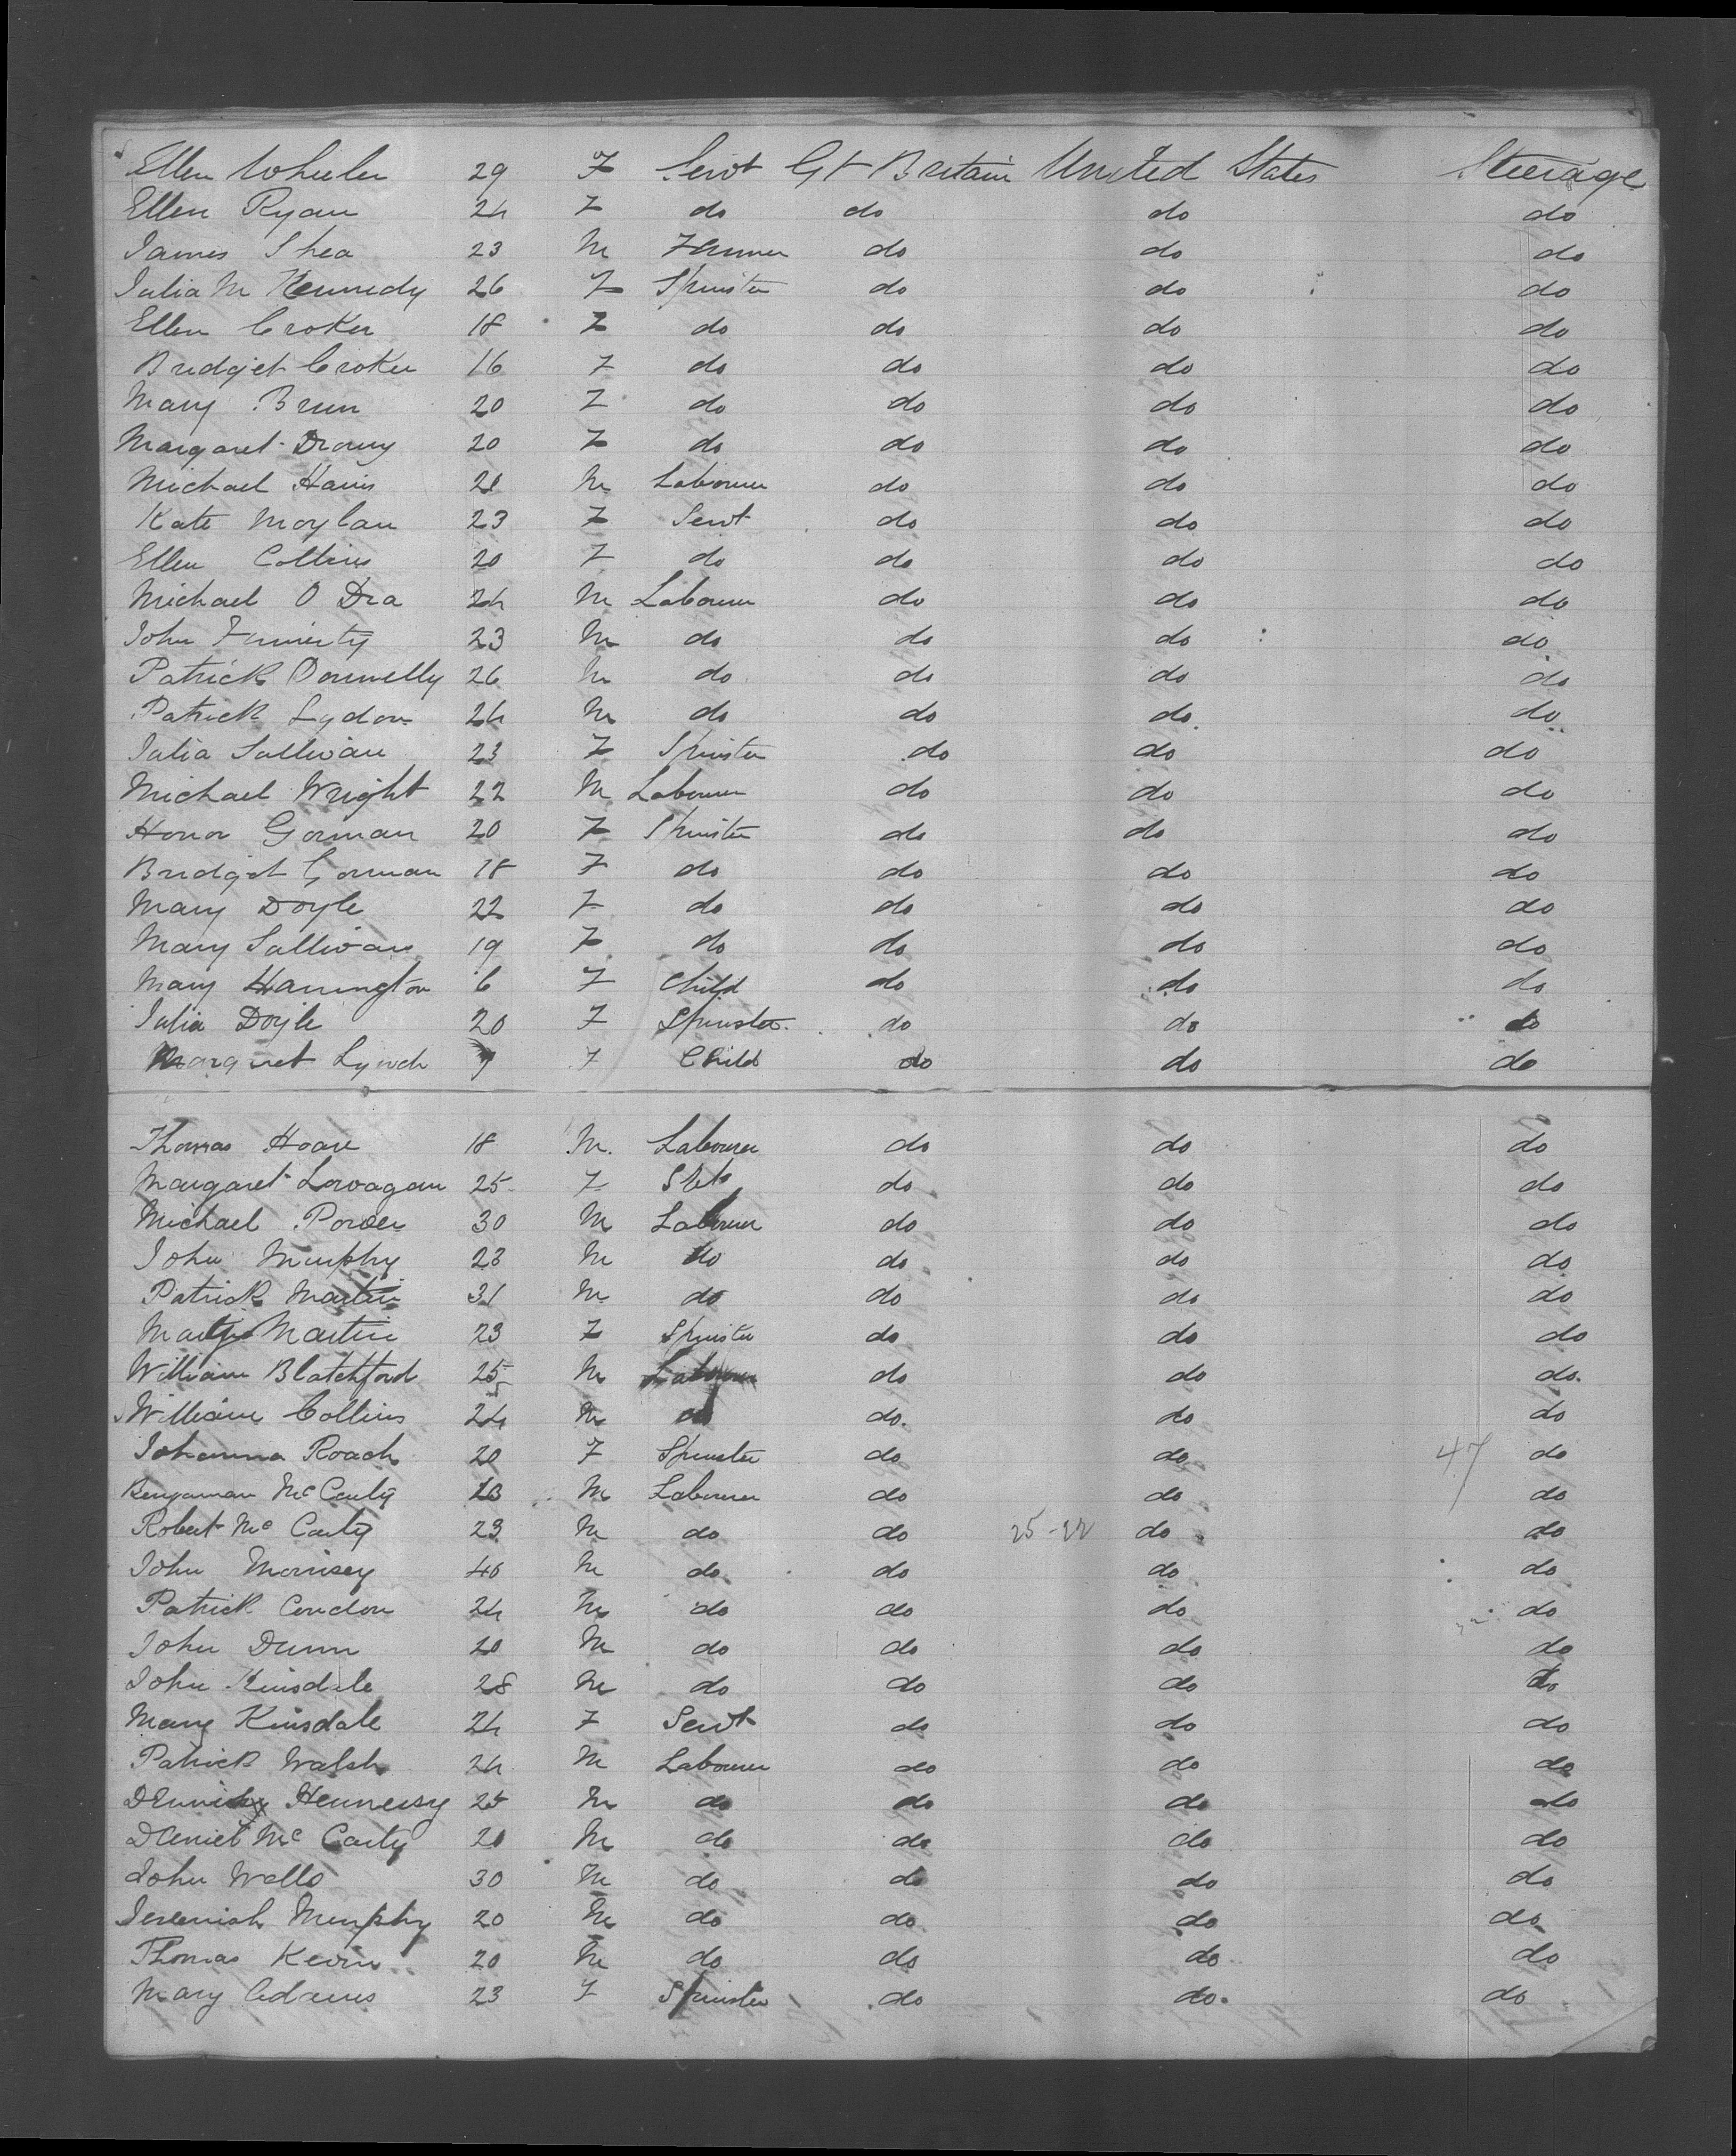 Ellen Wheeler 29 F Servt Gt Britain United States Steerage
Ellen Ryan 24 F do do do do
James Shea 23 M Farmer do do do
Julia M Kennedy 26 F Spinster do do do
Ellen Croker 18 F do do do do
Bridget Croker 16 F do do do do
Mary Brun 20 F do do do do
Margaret 20 F do do do do
Michael Haris 21 M Labourer do do do
Kate Moylan 23 F Servt do do do
Ellen Collins 20 F do do do do
Michael O Dea 24 M Labourer do do do
John 23 M do do do do
Patrick Donnelly 26 M do do do do
Patrick Lydon 24 M do do do do
Julia Sullivan 23 F Spinster do do do
Michael Wright 22 M Labourer do do do
Honor Gorman 20 F Spinster do do do
Bridget Gorman 18 F do do do do
Mary Doyle 22 F do do do do
Mary Sullivan 19 F do do do do
Mary Harrington 6 F Child do do do
Julia Doyle 20 F Spinster do do do
Margaret Lynch 7 F Child do do do
Thomas Hoare 18 M Labourer do do do
Margaret 25 F do do do
Michael Power 30 M Labourer do do do
John Murphy 23 M do do do do
Patrick Martin 31 M do do do do
Martin 23 F Spinster do do do
William Blatchford 25 M Labourer do do do
William Collins 24 M do do do do
Johanna Roach 20 F Spinster do do 47 do
Bengaman McCarty M Labourer do do do
Robert McCarty 23 M do do 25-22 do do
John Morrisey 40 M do do do do
Patrick Condon 24 M do do do do
John Dunn 20 M do do do do
John Kinsdale 28 M do do do do
Mary Kinsdale 24 F Servt do do do
Patrick Walsh 24 M Labourer do do do
Hennessy 25 M do do do do
Daniel McCarty 20 M do do do do
John Wells 30 M do do do do
Jeremiah Murphy 20 M do do do do
Thomas Kevin 20 M do do do do
Mary Adams 23 F Spinster do do do